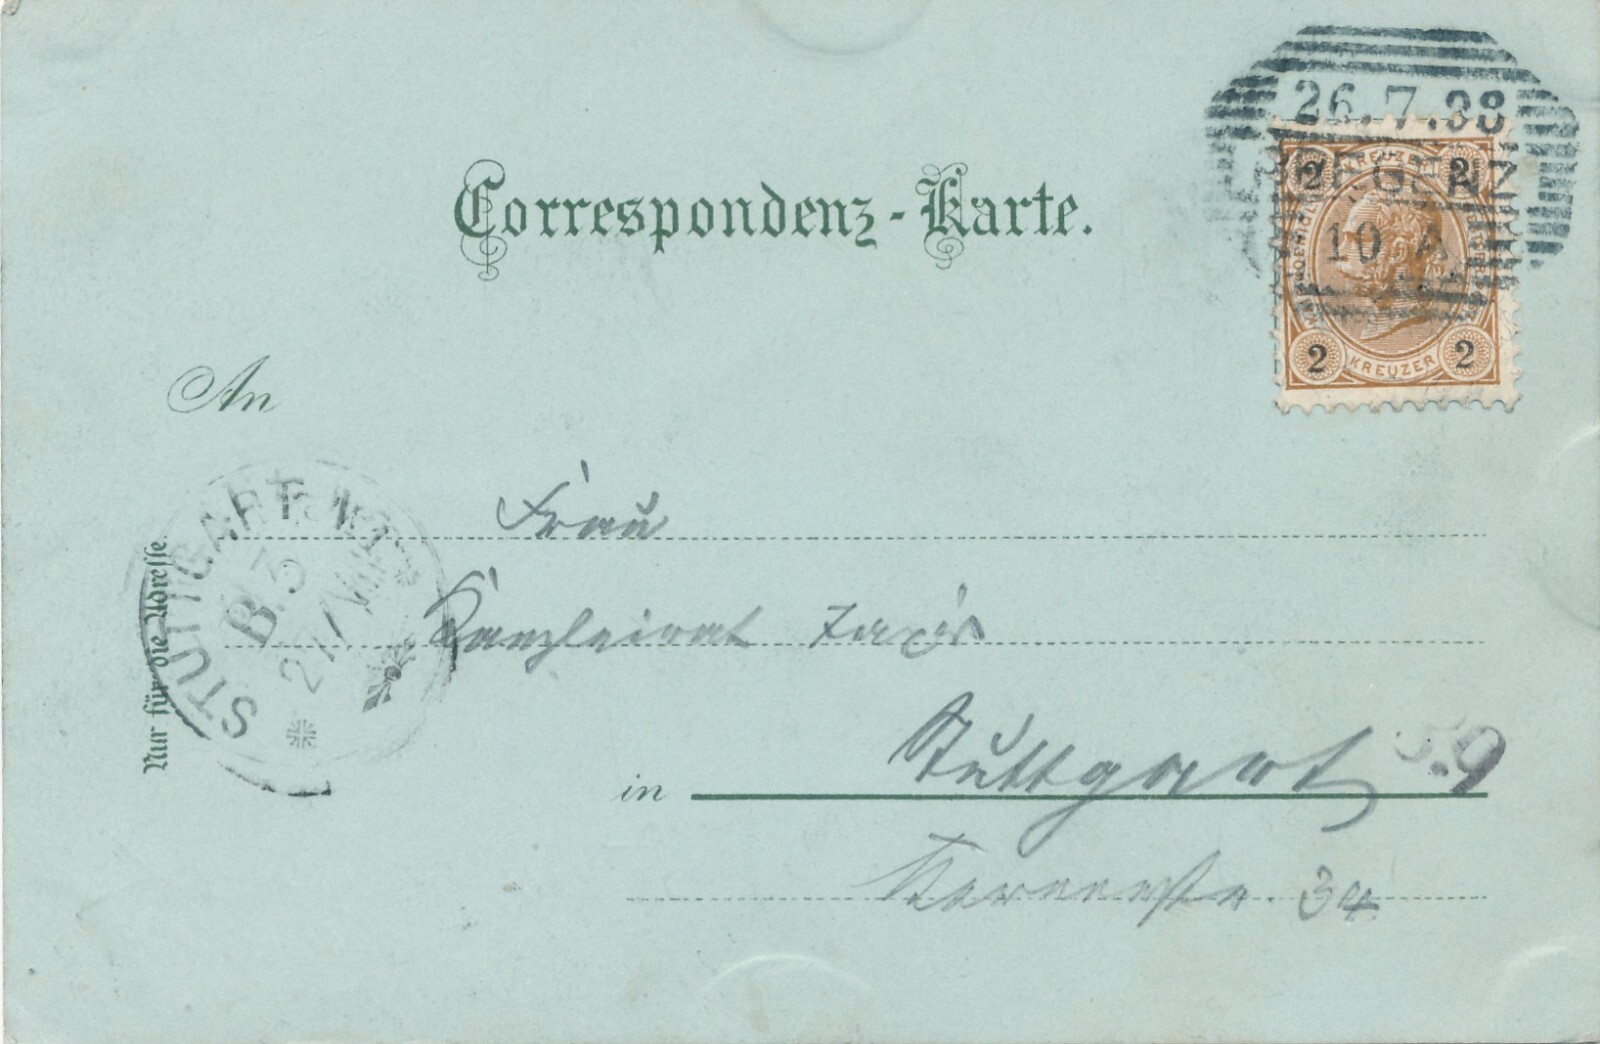 26.7.98
BREGENZ
10 A
KREUZER
2 2
2 2
KREUZER
Correspondenz-Karte.
An
STUTTGART
B.3
27/VII
Nur für die Adresse.
Frau
Kanzleirat Zaxis
in Stuttgart
34